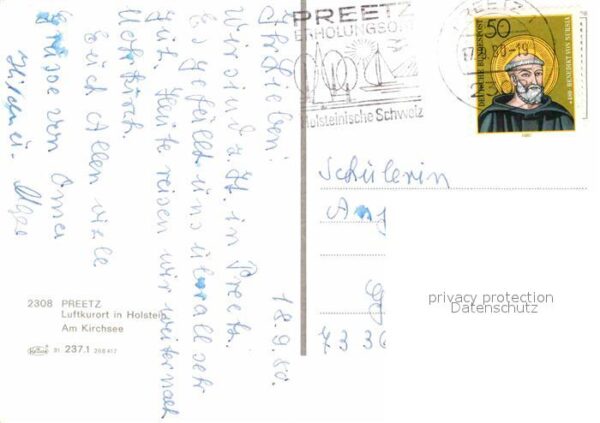 18.9.80.
Ihr Lieben!
Wir sind z. Zt. in Preetz.
Es gefällt uns überall sehr
gut. Heute reisen wir weiter nach
Euch Allen viele
Grüße von Oma
2308 PREETZ
Luftkurort in Holstein
Am Kirchsee
91 237.1
PREETZ
ERHOLUNGSORT
Holsteinische Schweiz
PREETZ
-9.80-19
50
DEUTSCHE BUNDESPOST
480 BENEDIKT VON NURSIA
1980
Schülerin
Ang
G
7336
privacy protection
Datenschutz